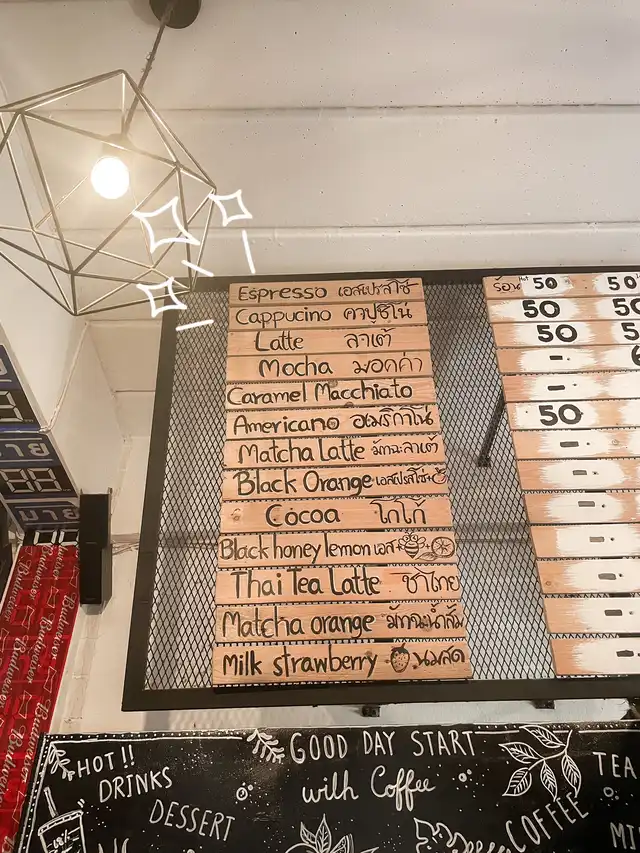 Espresso เอสเปรสโซ่
Cappucino คาปูชิโน่
Latte ลาเต้
Mocha มอคค่า
Caramel Macchiato
Americano อเมริกาโน่
Matcha Latte มัทฉะลาเต้
Black Orange เอสเปรสโซ่+
Cocoa โกโก้
Black honey lemon เอส+
Thai Tea Latte ชาไทย
Matcha orange มัทฉะน้ำส้ม
Milk strawberry นมสด
ร้อน Hot 50 50
50 50
50 5
-
-
50
-
-
-
-
-
-
-
ขาย
Budweiser
HOT !!
DRINKS
DESSERT
GOOD DAY START
with Coffee
COFFEE
TEA